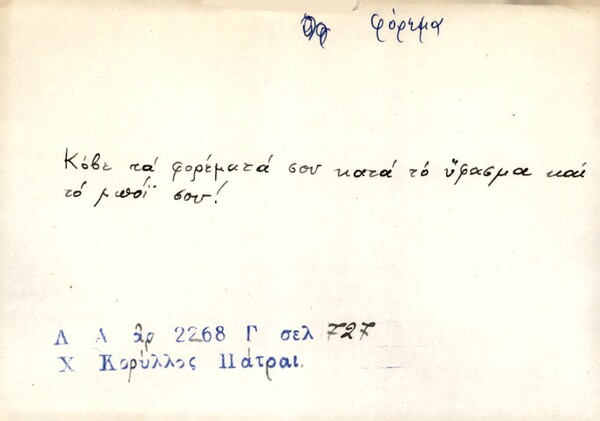 φόρεμα
Κόβε τά φορέματά σου κατά τό ὕφασμα καί
τό μπόϊ σου!
Λ Α ἀρ 2268 Γ σελ 727
Χ Κορύλλος Πάτραι.